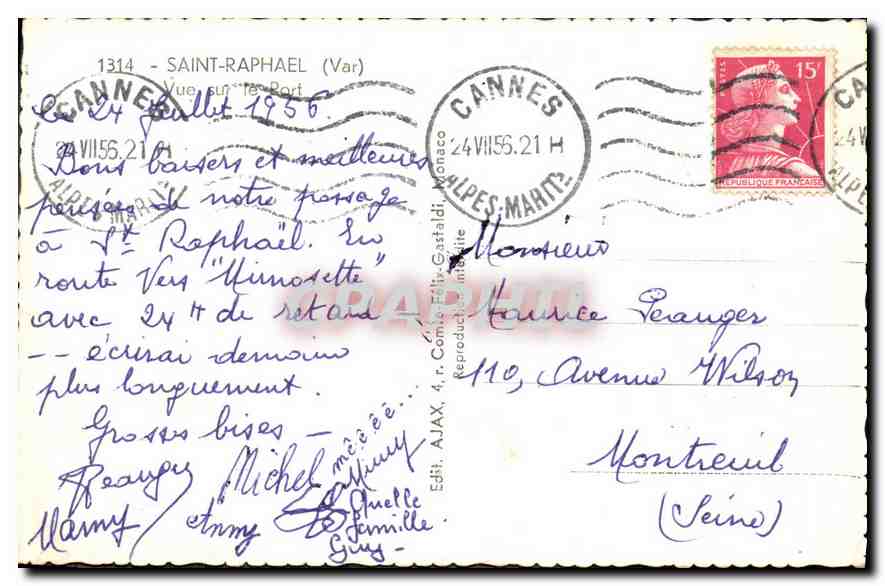 1314 - SAINT-RAPHAEL (Var)
Vue sur le Port
CANNES
24 VII 56.21 H
ALPES-MARIT
CANNES
24 VII 56.21 H
ALPES-MARIT^ES
POSTES
15F
REPUBLIQUE FRANCAISE
Le 24 Juillet 1956.
Bons baisers et meilleures
pensées de notre passage
à St Raphaël. En
route vers "Mimosette"
avec 24 H de retard -
-- écrirai demain
plus longuement.
Grosses bises -
Michel
mêêêê...
Mimy
Mamy / Anny
Quelle
famille.
Guy -
Edit. AJAX, 4, r. Comte-Félix-Gastaldi, Monaco
Reproduction interdite
Monsieur
Maurice Peranger
110, Avenue Wilson
Montreuil
(Seine)
CPAPHIL